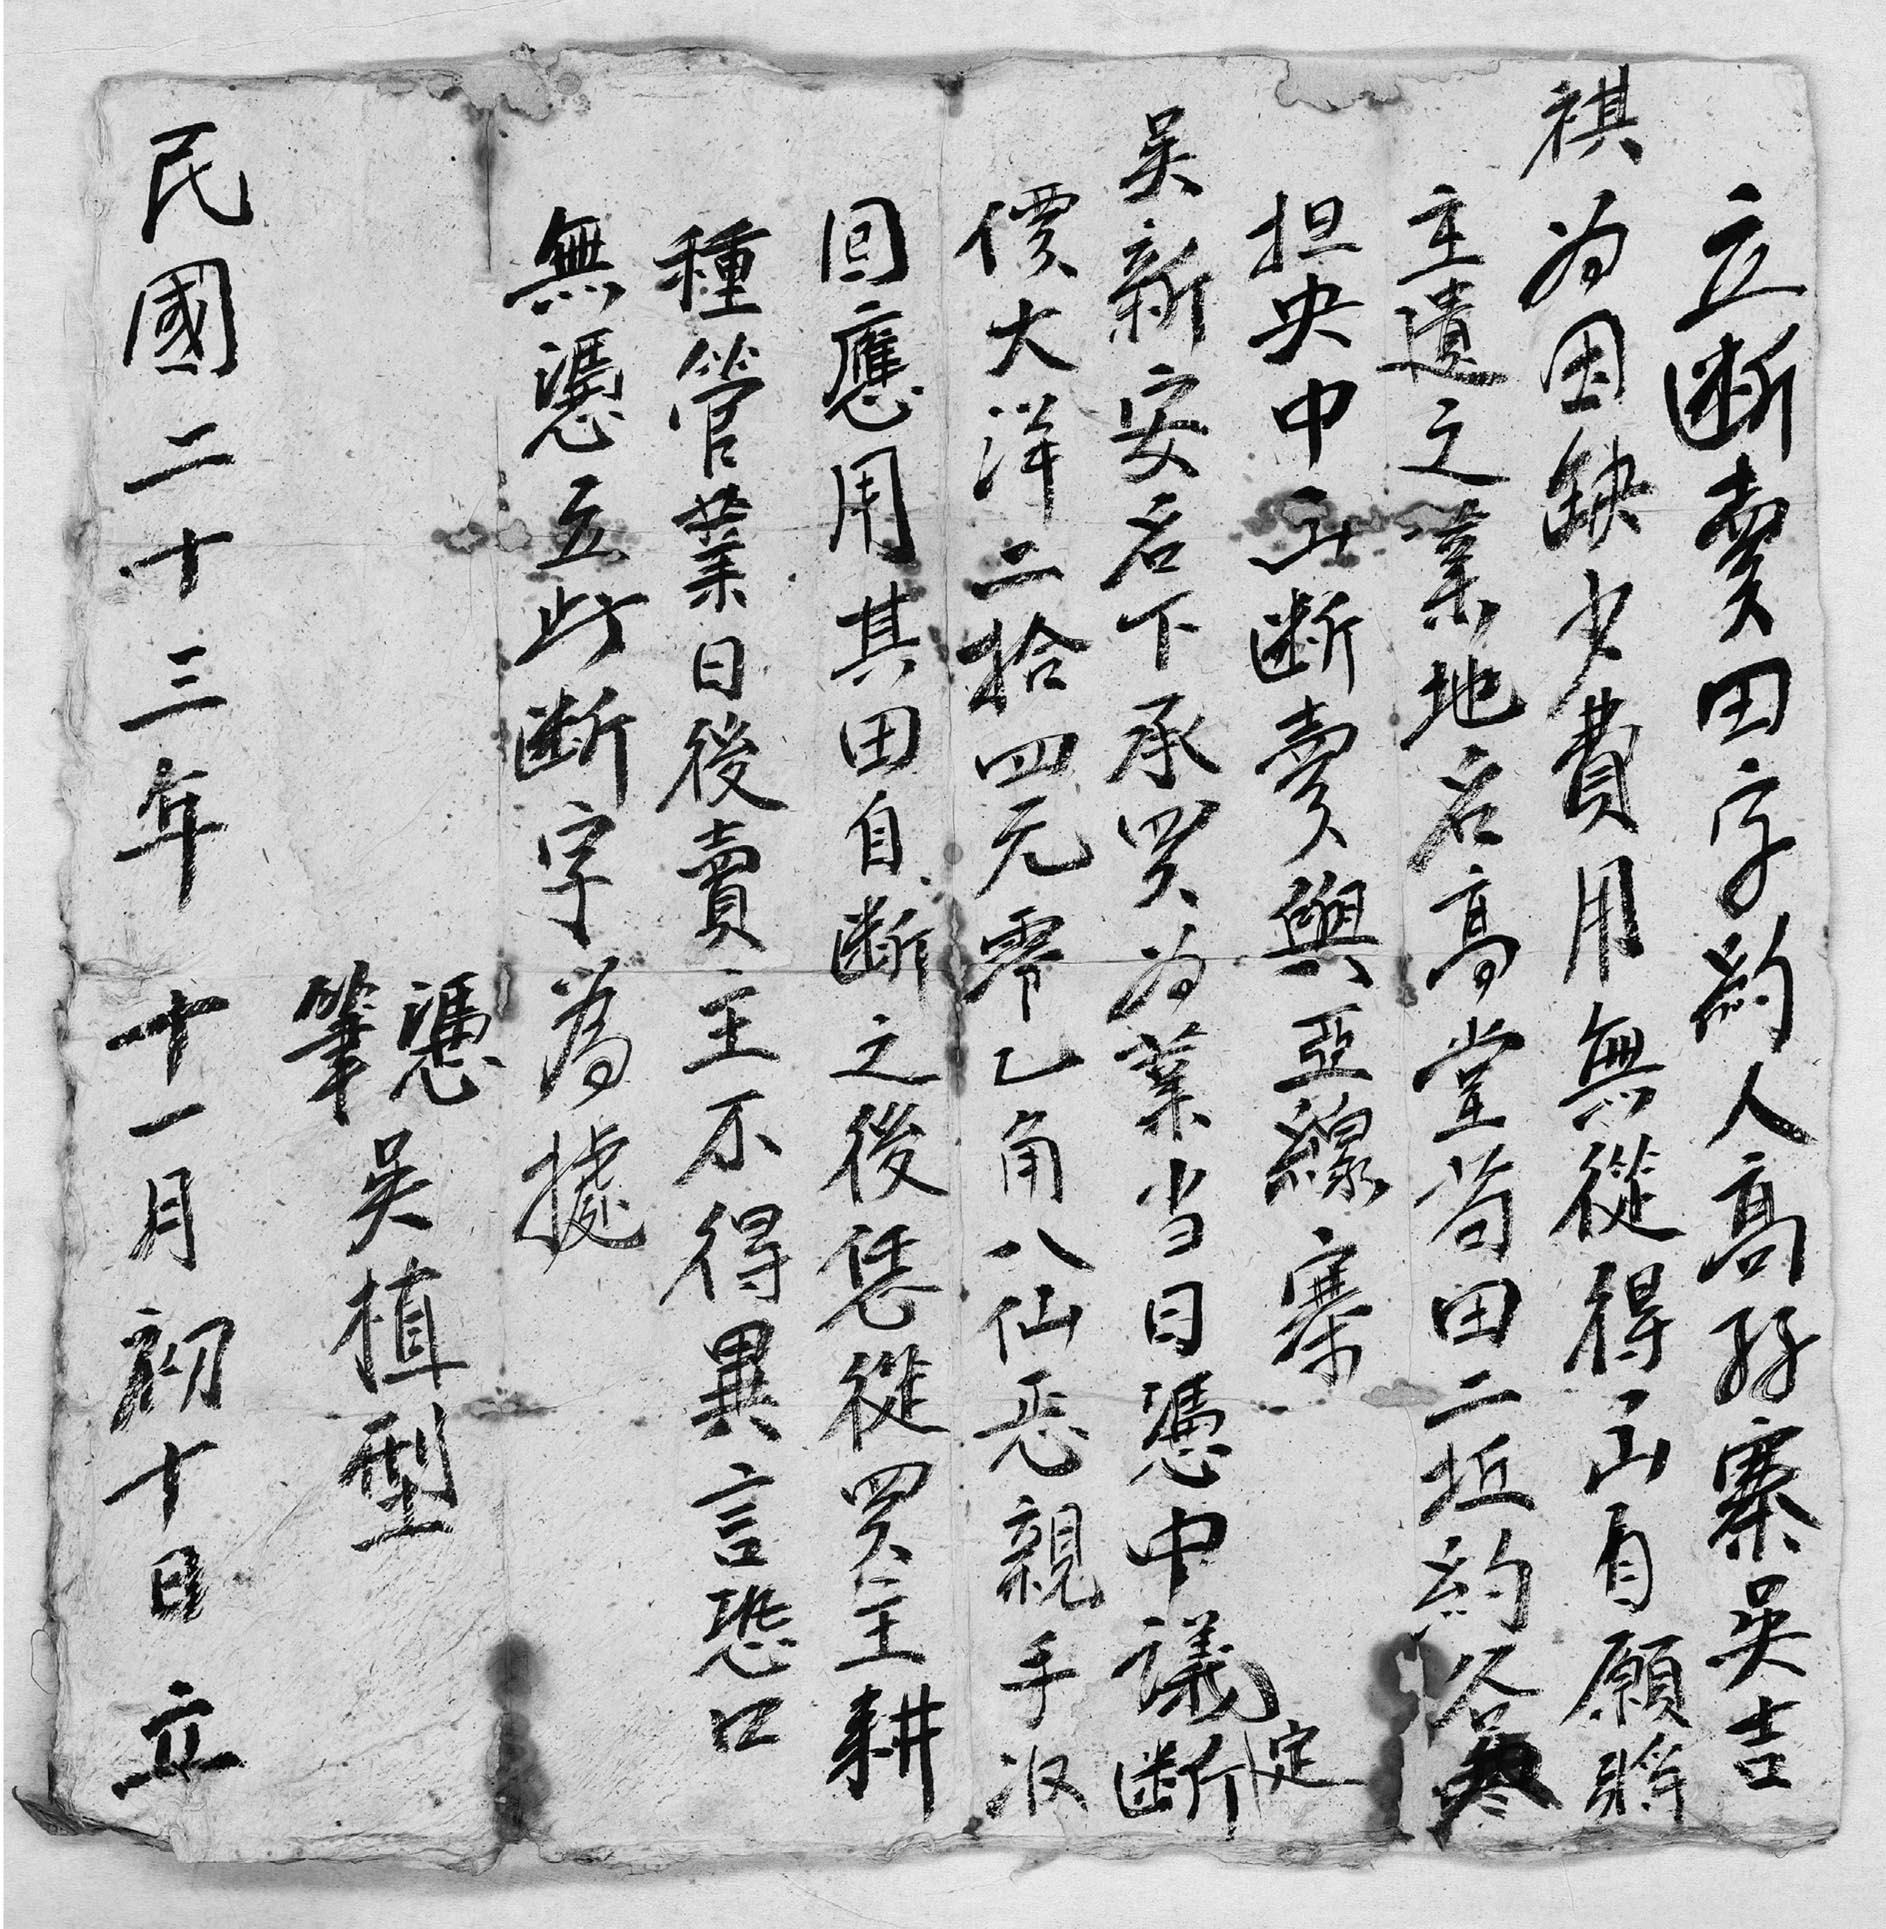 立断賣田字約人高孖寨吳吉
祺为因缺少費用無從得出自願將
主遺之業地名高堂苟田二坵約谷
担央中出断賣與亞線寨
吴新安名下承買为業当日憑中議定断
價大洋二拾四元零乙角八仙正親手收
回應用其田自断之後恁從買主耕
種管業日後賣主不得異言恐口
無憑立此断字為據
憑
筆 吴植型
民國二十三年十一月初十日立